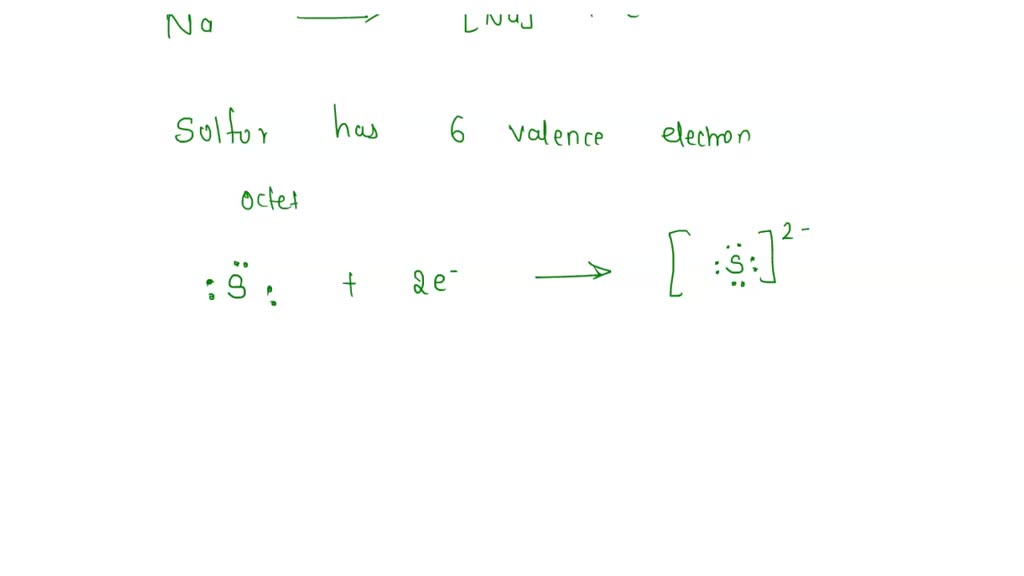 Na ⟶ [Na]
Solfor has 6 valence electron
octet
:S̈: + 2e⁻ ⟶ [:S̤̈:]²⁻